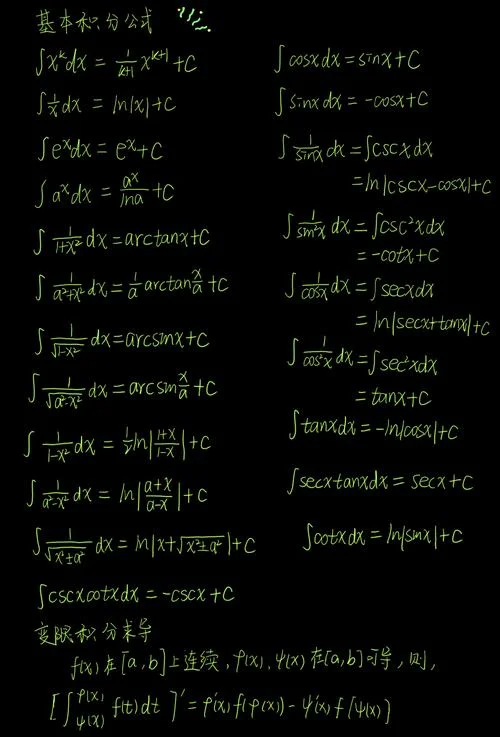 基本积分公式
∫x^k dx = 1/(k+1) x^(k+1) + C
∫1/x dx = ln|x| + C
∫e^x dx = e^x + C
∫a^x dx = a^x/lna + C
∫1/(1+x²) dx = arctanx + C
∫1/(a²+x²) dx = 1/a arctan x/a + C
∫1/√(1-x²) dx = arcsinx + C
∫1/√(a²-x²) dx = arcsin x/a + C
∫1/(1-x²) dx = 1/2 ln|(1+x)/(1-x)| + C
∫1/(a²-x²) dx = ln|(a+x)/(a-x)| + C
∫1/√(x²±a²) dx = ln|x+√(x²±a²)| + C
∫cscxcotxdx = -cscx + C
∫cosxdx = sinx + C
∫sinxdx = -cosx + C
∫1/sinx dx = ∫cscxdx
= ln|cscx-cosx| + C
∫1/sin²x dx = ∫csc²xdx
= -cotx + C
∫1/cosx dx = ∫secxdx
= ln|secx+tanx| + C
∫1/cos²x dx = ∫sec²xdx
= tanx + C
∫tanxdx = -ln|cosx| + C
∫secxtanxdx = secx + C
∫cotxdx = ln|sinx| + C
变限积分求导
f(x)在[a,b]上连续,φ(x),ψ(x)在[a,b]可导,则,
[∫_ψ(x)^φ(x) f(t)dt]' = φ'(x)f(φ(x)) - ψ'(x)f[ψ(x)]